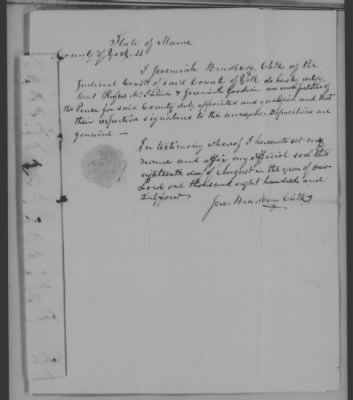 State of Maine
County of York SS
I Jeremiah Bradbury, Clerk of the
Judicial Courts of said County of York do hereby certify,
that Rufus McIntire & Jeremiah Goodwin are Justices of
the Peace for said County duly appointed and qualified and that
their respective signatures to the annexed Depositions are
genuine —
In testimony whereof I hereunto set my
name and affix my official seal this
eighteenth day of August in the year of our
Lord one thousand eight hundred and
Jere. Bradbury Clerk